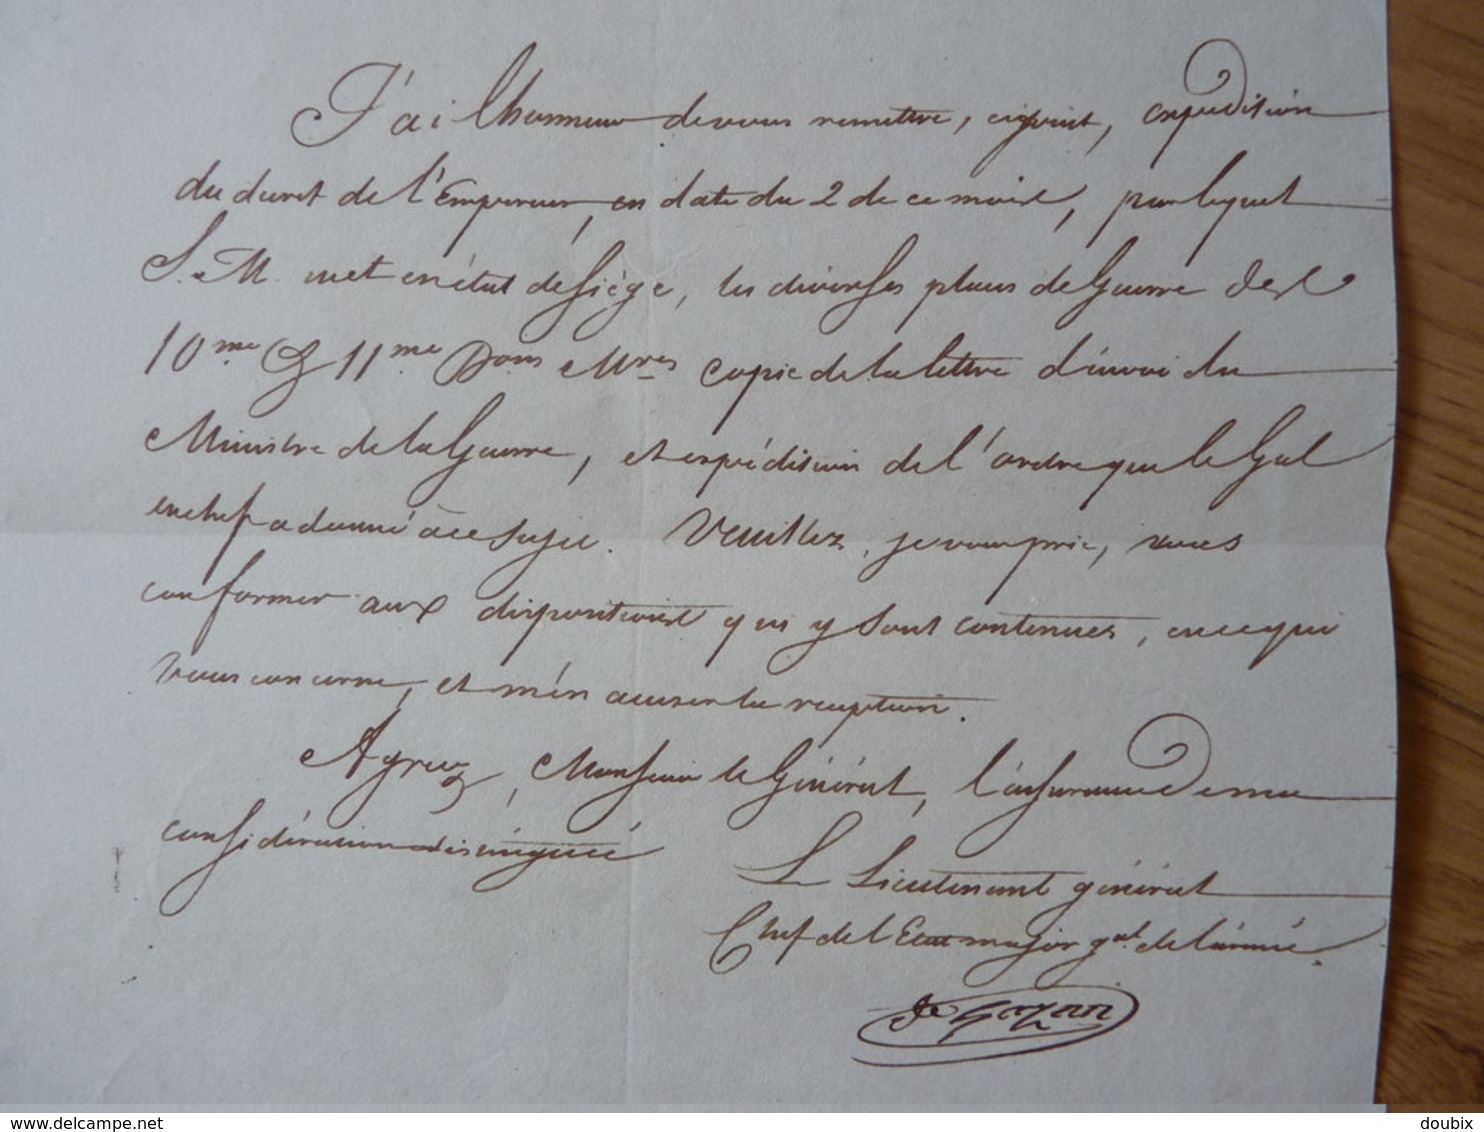 J'ai l'honneur de vous remettre, cijoint, expédition
du decret de l'Empereur, en date du 2 de ce mois, par lequel
S. M. met en état de Siège, les diverses places de Guerre des
10.me & 11.me Dons Mres copie de la lettre d'envoi du
Ministre de la Guerre, et expédition de l'ordre que le Gal
en chef a donné à ce Sujet. Veuillez, je vous prie, vous
conformer aux dispositions qui y sont contenues, en ce qui
vous concerne, et m'en accuser la reception.
Agréez, Monsieur le Général, l'assurance de ma
considération distinguée
Le Lieutenant général
Chef de l'Etat major gal. de l'armée.
Cte Gazan
delcampe.net
doubix